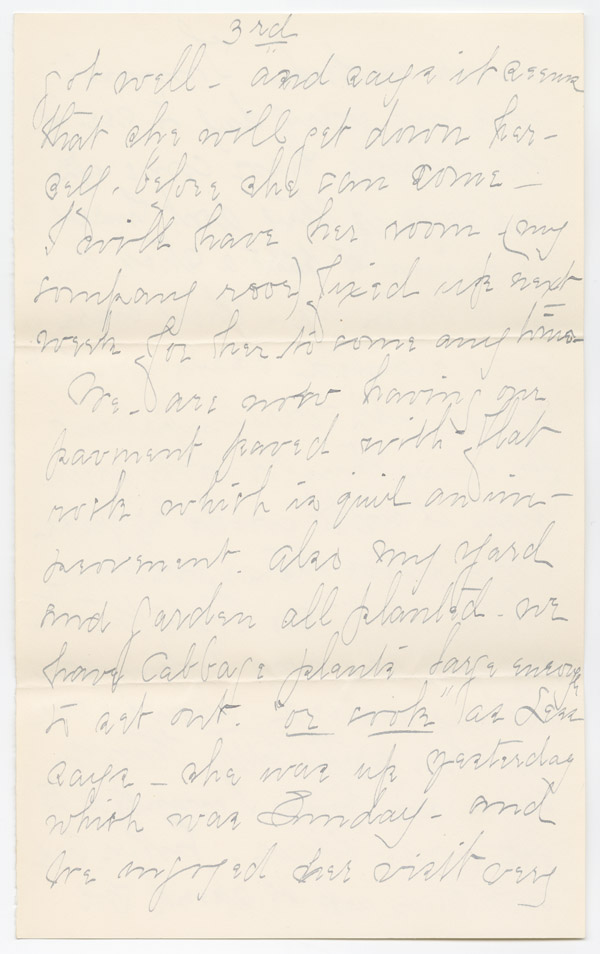 3rd
got well - and says it seems
that she will get down her-
self. before she can come -
I will have her room (my
company room) fixed up next
week for her to come any time
We are now having our
pavment paved with flat
rock which is quit an im-
provement. also my yard
and garden all planted - we
have Cabbage plants large enough
to set out. "or cook" as
says - she was up yesterday
which was Sunday - and
We injoyed her visit very